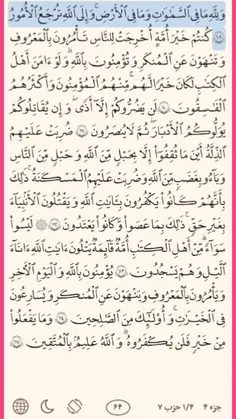 وَلِلَّهِ مَا فِي ٱلسَّمَٰوَٰتِ وَمَا فِي ٱلۡأَرۡضِۚ وَإِلَى ٱللَّهِ تُرۡجَعُ ٱلۡأُمُورُ
١٠٩ كُنتُمۡ خَيۡرَ أُمَّةٍ أُخۡرِجَتۡ لِلنَّاسِ تَأۡمُرُونَ بِٱلۡمَعۡرُوفِ
وَتَنۡهَوۡنَ عَنِ ٱلۡمُنكَرِ وَتُؤۡمِنُونَ بِٱللَّهِۗ وَلَوۡ ءَامَنَ أَهۡلُ
ٱلۡكِتَٰبِ لَكَانَ خَيۡرٗا لَّهُمۚ مِّنۡهُمُ ٱلۡمُؤۡمِنُونَ وَأَكۡثَرُهُمُ
ٱلۡفَٰسِقُونَ ١١٠ لَن يَضُرُّوكُمۡ إِلَّآ أَذٗىۖ وَإِن يُقَٰتِلُوكُمۡ
يُوَلُّوكُمُ ٱلۡأَدۡبَارَ ثُمَّ لَا يُنصَرُونَ ١١١ ضُرِبَتۡ عَلَيۡهِمُ
ٱلذِّلَّةُ أَيۡنَ مَا ثُقِفُوٓاْ إِلَّا بِحَبۡلٖ مِّنَ ٱللَّهِ وَحَبۡلٖ مِّنَ ٱلنَّاسِ
وَبَآءُو بِغَضَبٖ مِّنَ ٱللَّهِ وَضُرِبَتۡ عَلَيۡهِمُ ٱلۡمَسۡكَنَةُۚ ذَٰلِكَ
بِأَنَّهُمۡ كَانُواْ يَكۡفُرُونَ بِـَٔايَٰتِ ٱللَّهِ وَيَقۡتُلُونَ ٱلۡأَنۢبِيَآءَ
بِغَيۡرِ حَقّٖۚ ذَٰلِكَ بِمَا عَصَواْ وَّكَانُواْ يَعۡتَدُونَ ١١٢ لَيۡسُواْ
سَوَآءٗۗ مِّنۡ أَهۡلِ ٱلۡكِتَٰبِ أُمَّةٞ قَآئِمَةٞ يَتۡلُونَ ءَايَٰتِ ٱللَّهِ ءَانَآءَ
ٱلَّيۡلِ وَهُمۡ يَسۡجُدُونَ ١١٣ يُؤۡمِنُونَ بِٱللَّهِ وَٱلۡيَوۡمِ ٱلۡأٓخِرِ
وَيَأۡمُرُونَ بِٱلۡمَعۡرُوفِ وَيَنۡهَوۡنَ عَنِ ٱلۡمُنكَرِ وَيُسَٰرِعُونَ
فِي ٱلۡخَيۡرَٰتِۖ وَأُوْلَٰٓئِكَ مِنَ ٱلصَّٰلِحِينَ ١١٤ وَمَا يَفۡعَلُواْ
مِنۡ خَيۡرٖ فَلَن يُكۡفَرُوهُۗ وَٱللَّهُ عَلِيمُۢ بِٱلۡمُتَّقِينَ ١١٥
جزء ۴ ۱/۴ حزب ۷ ۶۴